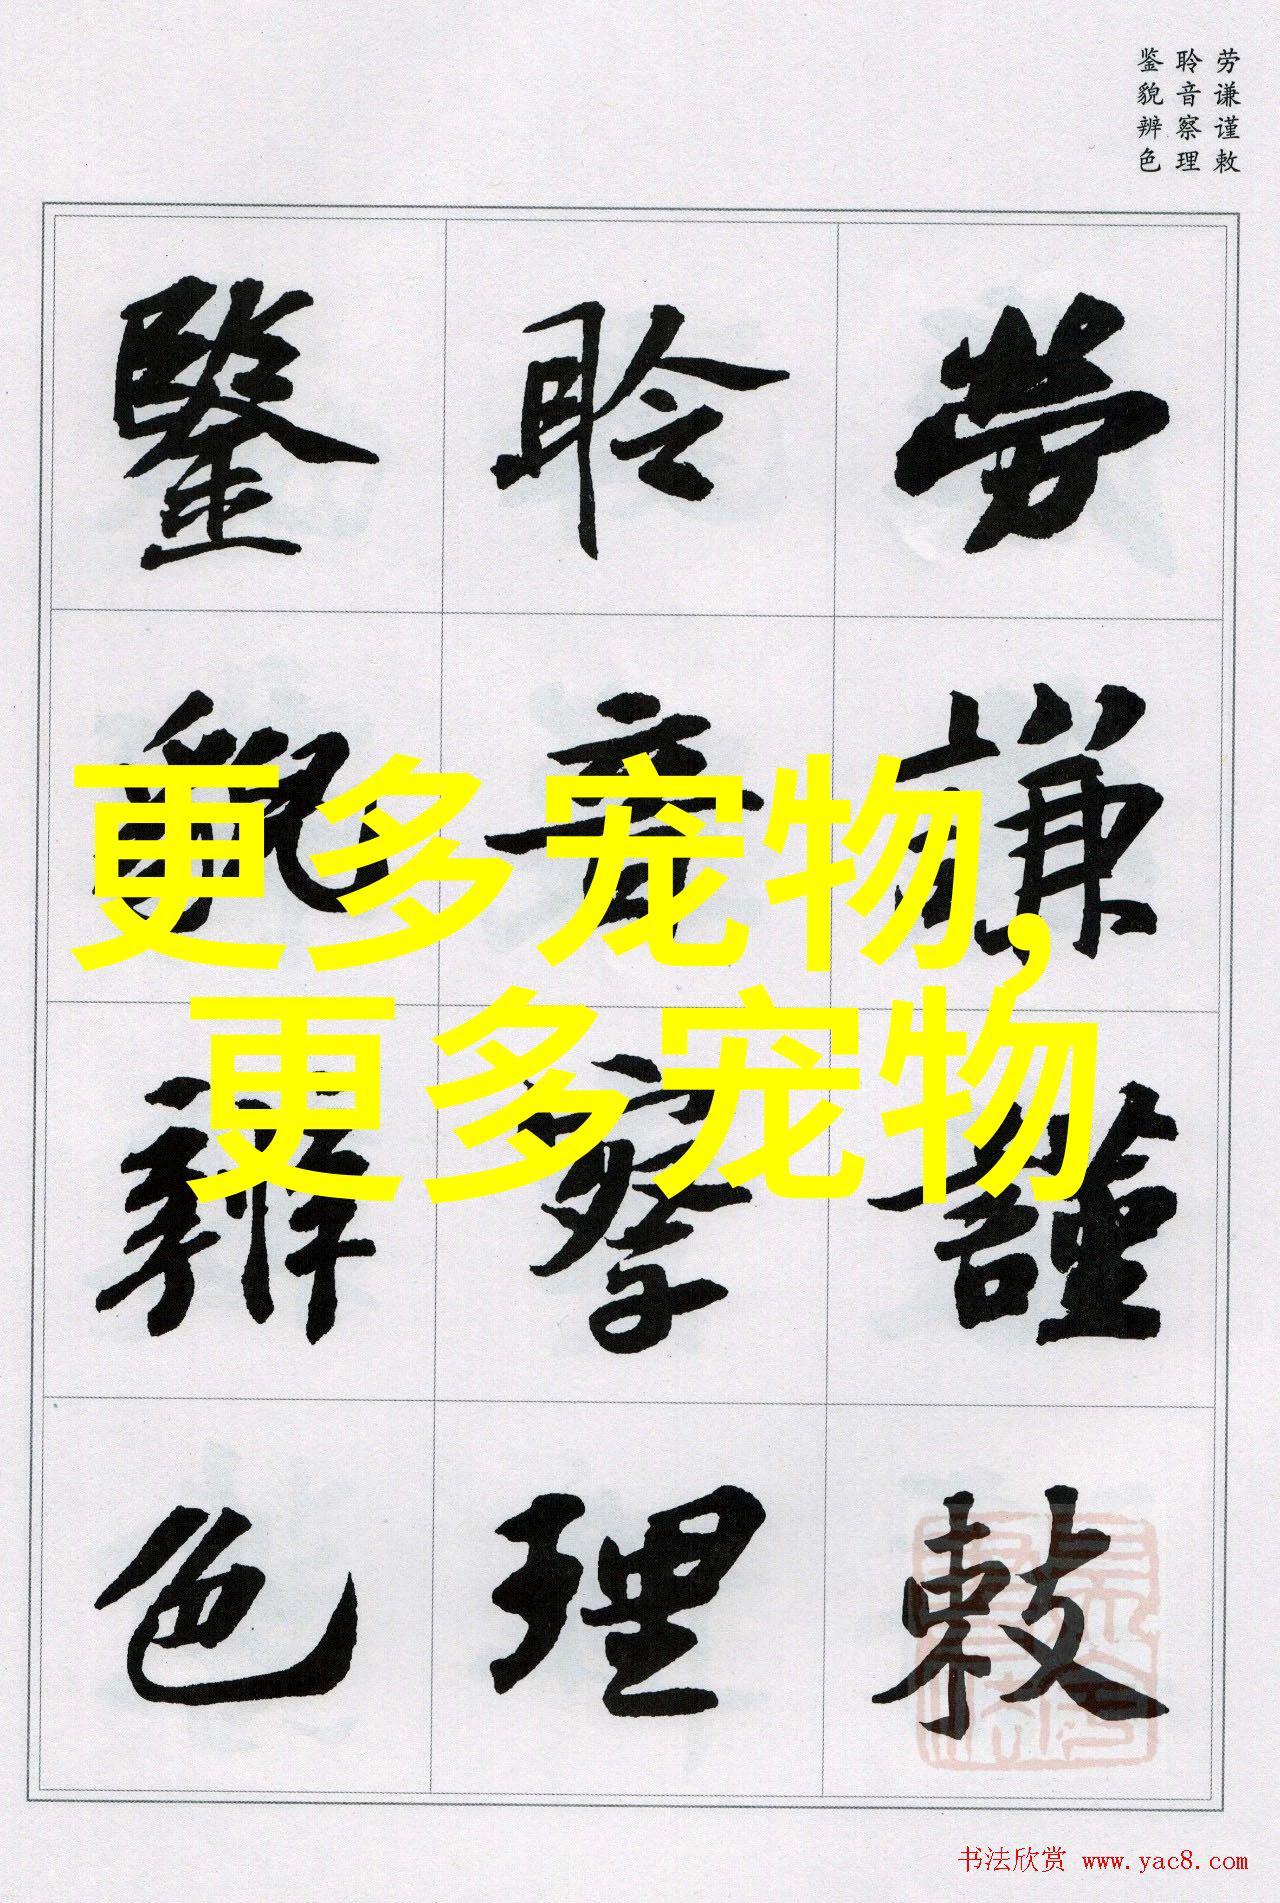 劳谦谨敕
聆音察理
鉴貌辨色
勞謙謹敕
聆音察理
鑒貌辨色
更多宠物,
更多宠物
书法欣赏 www.yac8.com